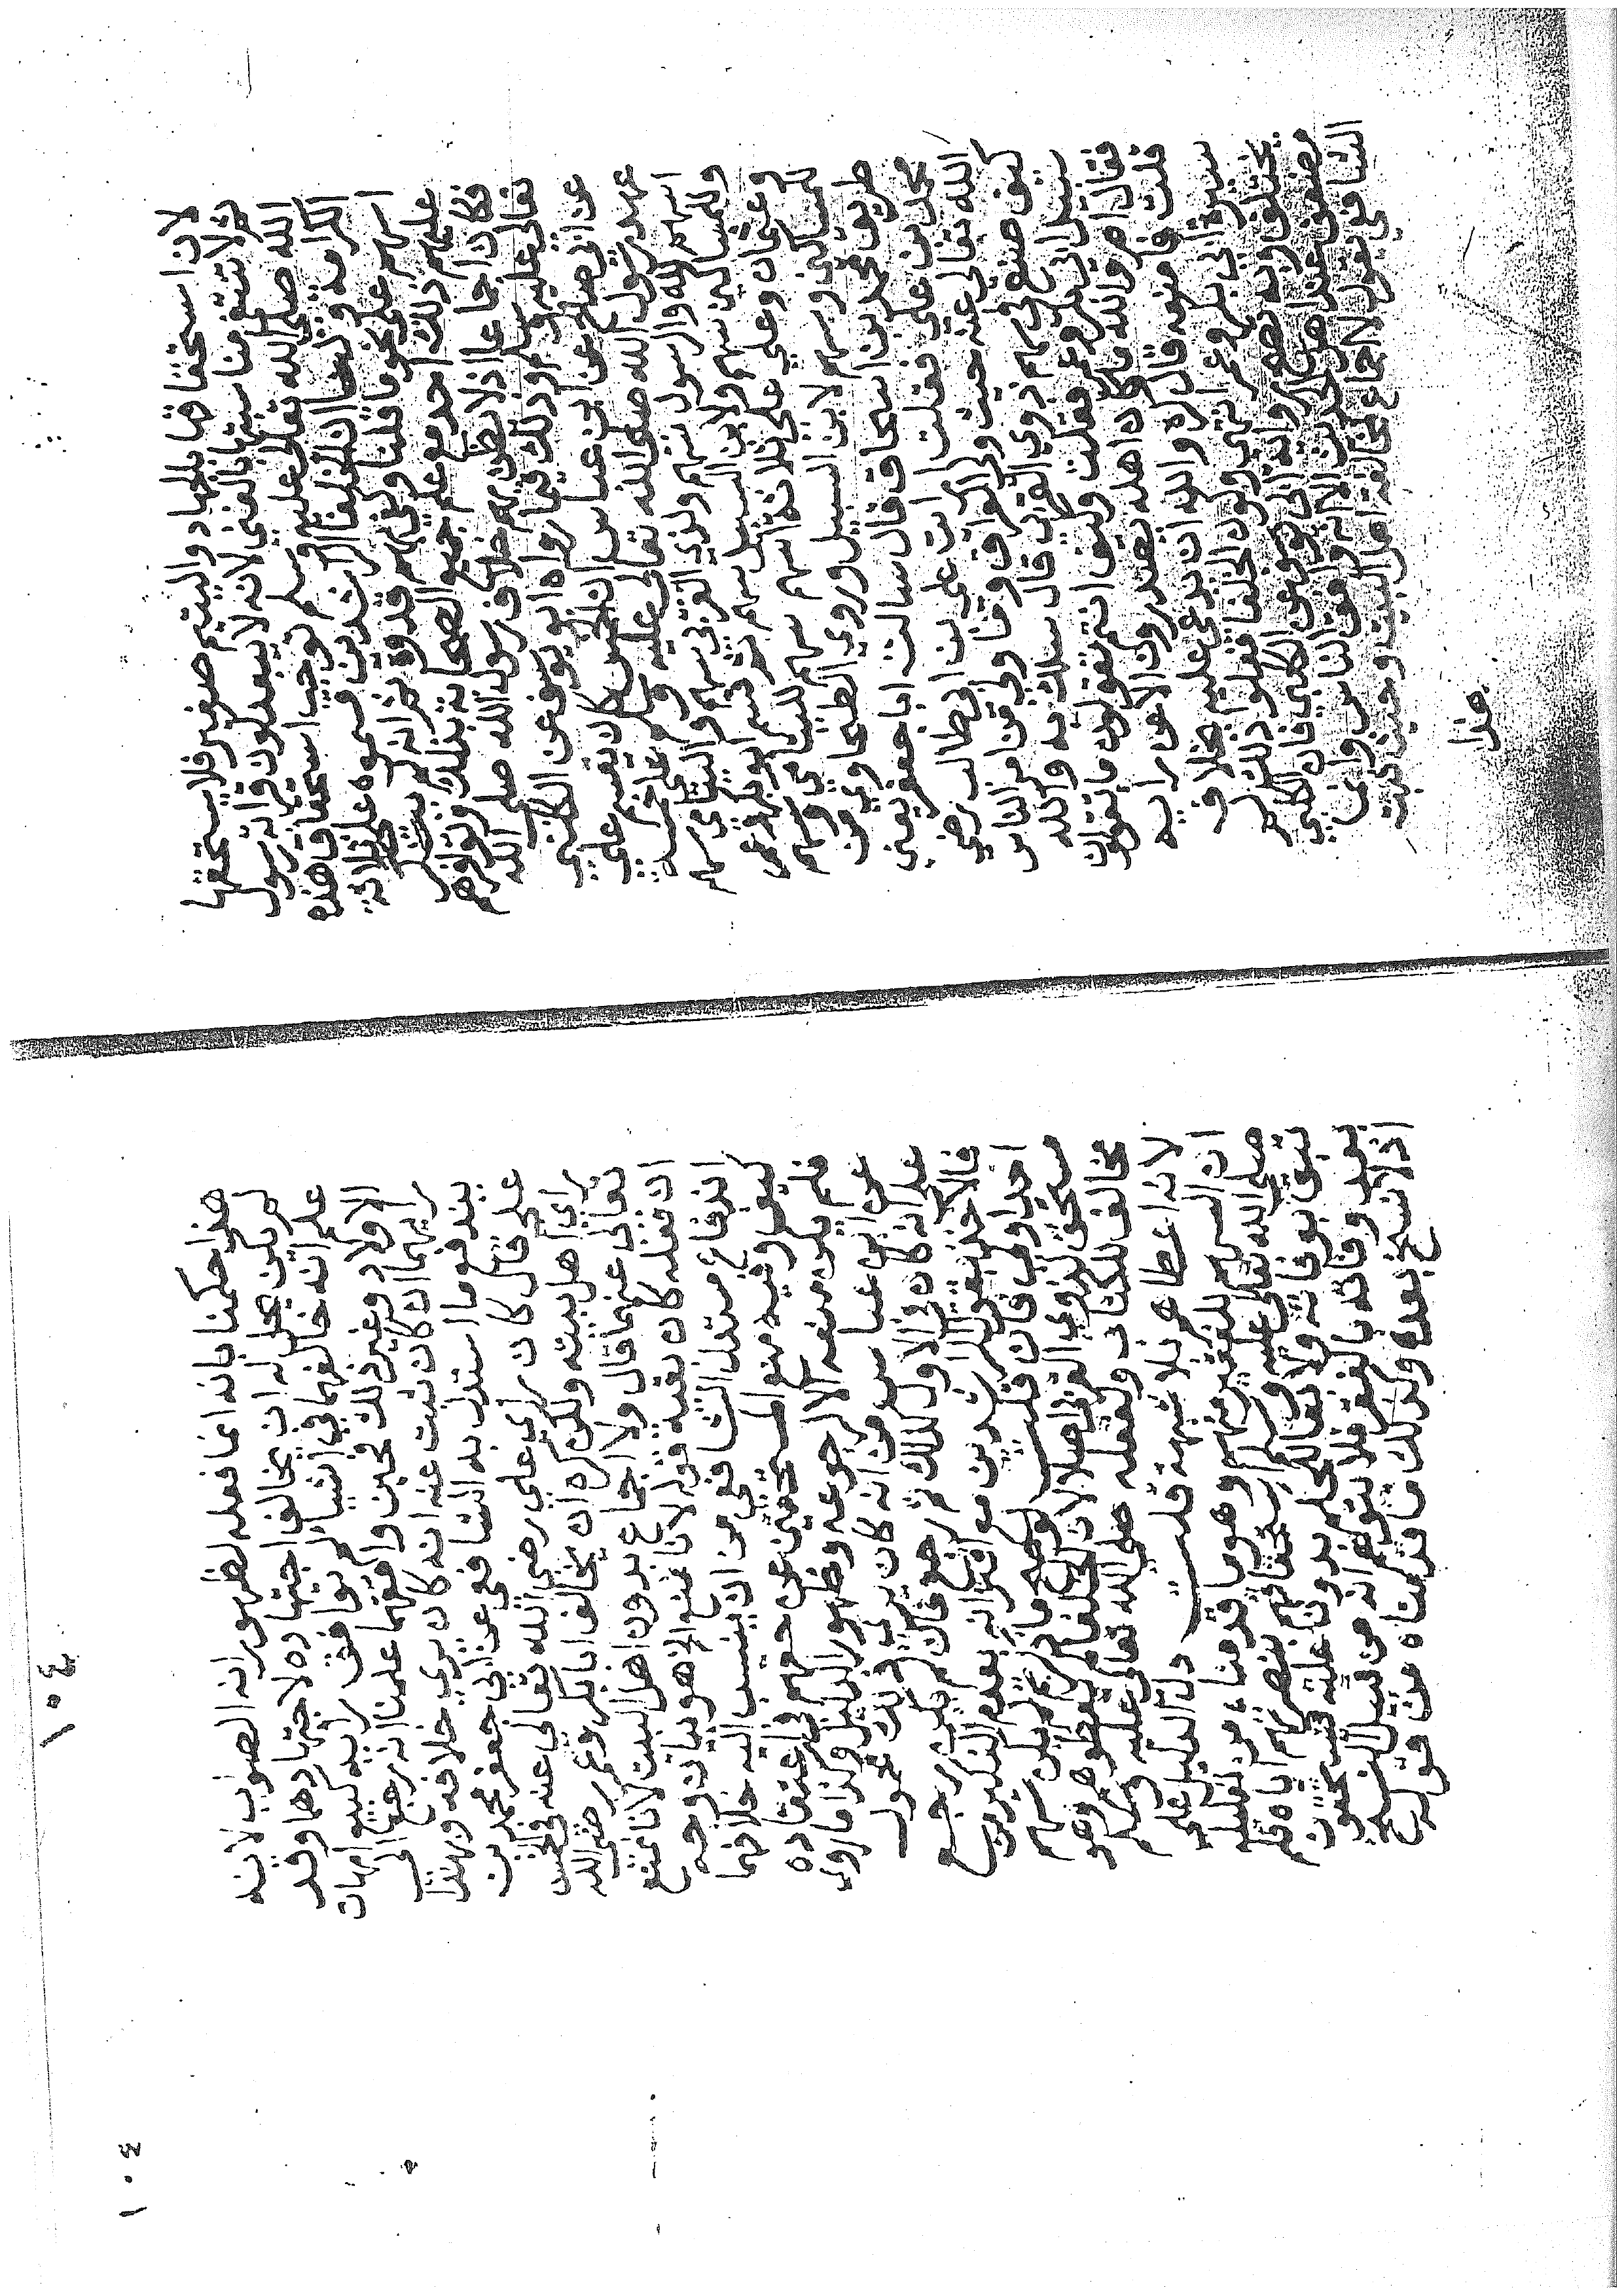 لان استحقاقها بالجهاد واليتيم صغير فلا يستحقها
ثم لا تتفق مناسبتها بالغنى لانه لا يعدلون قرابة رسول
الله صلى الله تعالى عليه وسلم توجب استحقاق هذه
الكرامة ولنا ان الخلفا الراشدين قسموه على ثلاثة
اسهم على نحو ما قلنا وكفى بهم قدوة ثم انه لم ينكر
عليهم ذلك احد مع علم جميع الصحابة بذلك وتوافرهم
فكان اجماعا اذ لا يظن بهم خلاف رسول الله صلى الله
تعالى عليه وسلم وذلك فيما رواه ابو يوسف عن الكلبي
عن ابي صالح عن ابن عباس ان الخمس كان يقسم على
عهد رسول الله صلى الله تعالى عليه وسلم على خمسة
اسهم لله والرسول سهم ولذوي القربى سهم ولليتامى سهم
وللمساكين سهم ولابن السبيل سهم ثم قسم ابو بكر وعمر
وعثمان وعلي على ثلاثة اسهم سهم لليتامى وسهم
للمساكين وسهم لابن السبيل وروى الطحاوي من
طريق محمد بن اسحاق قال سالت ابا جعفر يعني
محمد بن علي فقلت ارايت علي بن ابي طالب رضي
الله تعالى عنه حيث ولي العراق وما ولي من امر الناس
كيف صنع في سهم ذوي القربى قال سلك به والله
سبيل ابي بكر وعمر فقلت وكيف انتم تقولون ما تقولون
فقال اما والله ما كان اهله يصدرون الا عن رايه
قلت فما منعه قال كره والله ان يدعى عليه بخلاف
سيرة ابي بكر وعمر انتهى وكون الخلفا فعلوا ذلك لم
يختلف فيه وبه تصح رواية ابي يوسف عن الكلبي فان الكلبي
مضعف عند اهل الحديث الا انه وافق الناس وانما
الشافعي يقول لا اجماع بمخالفة اهل البيت وحين ثبت
هذا
هذا حكمنا بانه انما فعله لظهور انه الصواب لانه
لم يكن يحل له ان يخالف اجتهاده لاجتهادهما وقد
علم انه خالفهما في اشياء لم توافق رايه كبيع امهات
الاولاد وغير ذلك فحين وافقهما علمنا انه رجع الى
رايهما ان كان ثبت عنه انه كان يرى خلافه وبهذا
يندفع ما استدل به الشافعي عن ابي جعفر محمد بن
علي قال كان راي علي رضي الله تعالى عنه في الخمس
راي اهل بيته ولكن كره ان يخالف ابا بكر وعمر رضي الله
تعالى عنهما قال ولا اجماع بدون اهل البيت لانا نمنع
ان فعله كان تقية قوله لانا نمنع الخ هو بيان وجه
اندفاع مستدل الشافعي من ان ينسب اليه خلافهما
كيف وفيه منع المستحقين عن حقهم في اعتقاده
فلم يكن منعه الا لرجوعه وظهور الدليل وكذا ما روي
عن ابن عباس من انه كان يرى ذلك محمول
على انه كان في الاول كذلك ثم رجع فان لم يكن رجع
فالاخذ بقول الراشدين مع اقترانه بعدم النكير من
احد اولى فان قلت لو صح ما ذكرتم لم يكن سهم
مستحق لذوي القربى اصلا لان الخلفا لم يعطوهم وهو
مخالف للكتاب ولفعله صلى الله تعالى عليه وسلم
لانه اعطاهم بلا شبهة قلت دل الدليل على
ان السهم للفقير منهم وهو ما قدمناه من تعليله
صلى الله تعالى عليه وسلم استحقاقهم بنصرتهم اياه فلم
تبق بوفاته ولا بقاء للحكم بدون علته فيستحقون
بعد وفاته بالفقر فلا يتوهم انه من قبيل النسخ
اذ لا نسخ بعده وكذلك ما قدمناه من قوله
١٠٤
١٠٤